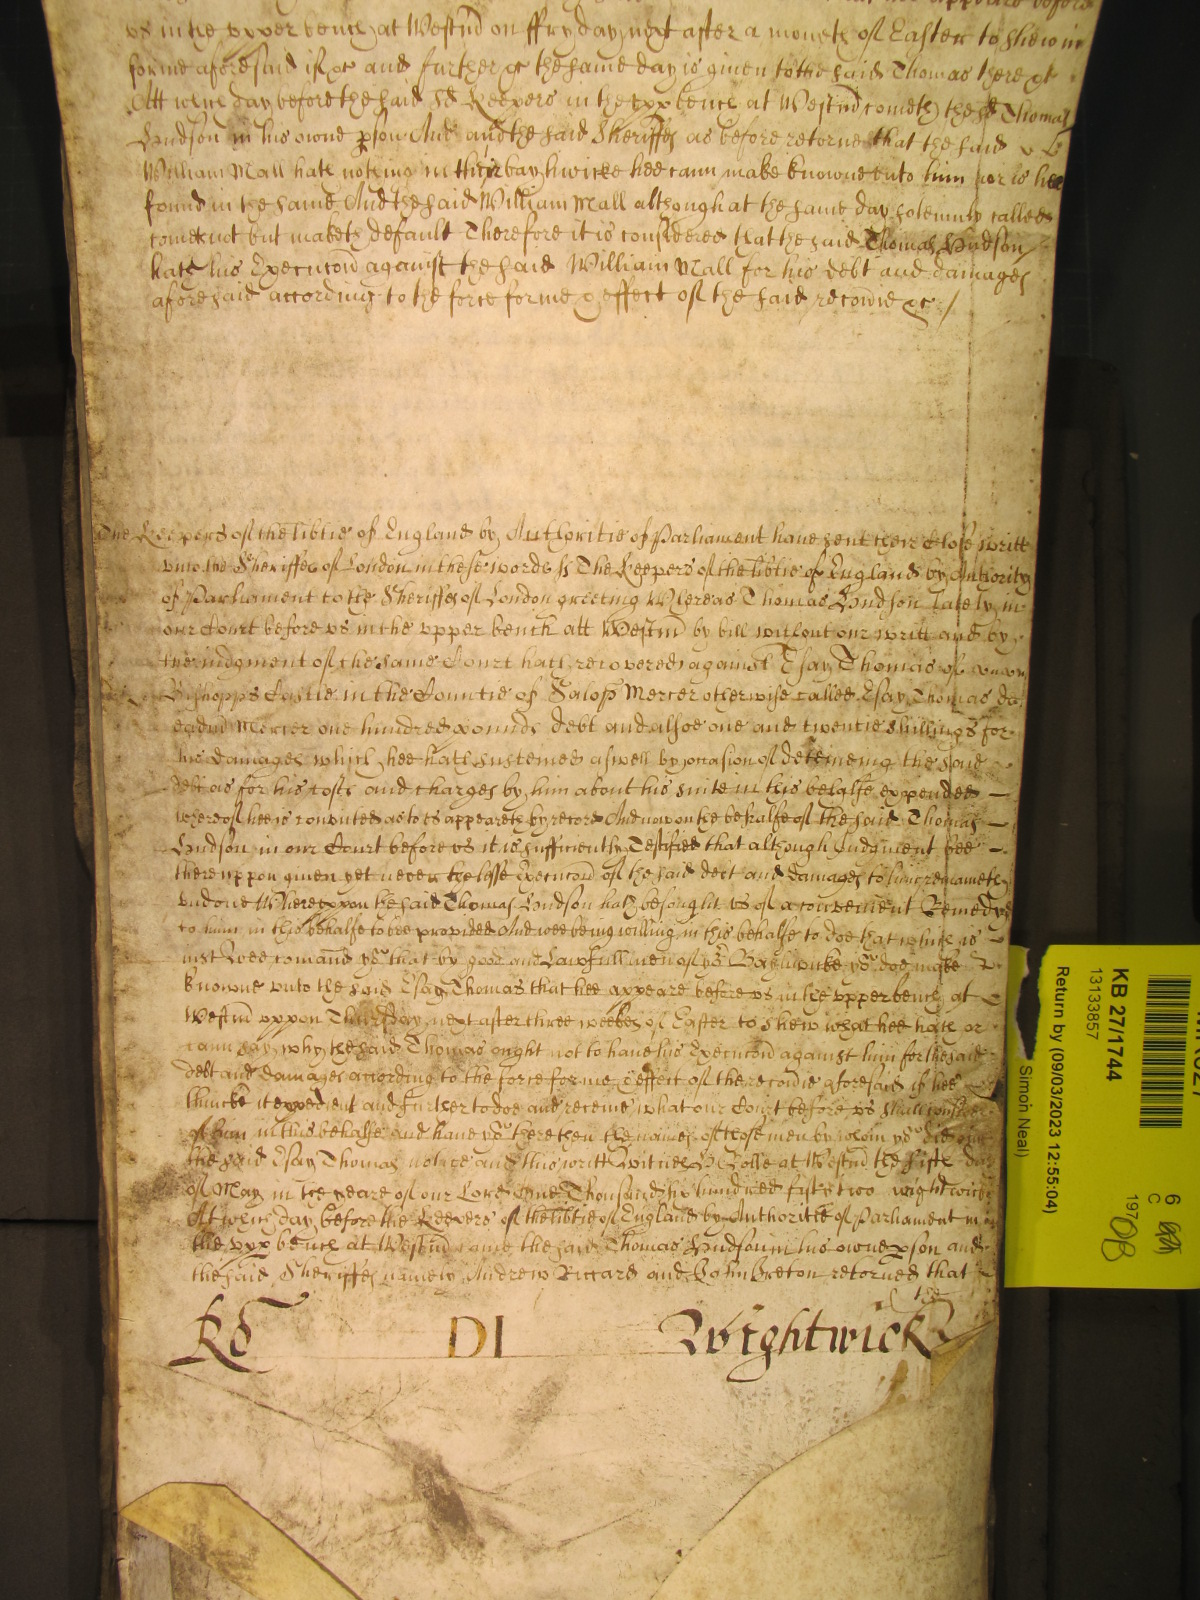 appeare before
us in the upper bench at Westm̄ on ffryday next after a moneth of Easter to shew in
forme aforesaid if &c and further &c the same day is given to the said Thomas there &c
Att wch day before the said Keepers in the upp bench at Westm̄ cometh the sd Thomas
Hudson in his owne pson And and the said Sheriffes as before retorne that the said
William Mall hath nothing in their bayliwicke hee cann make knowne unto him nor is hee
found in the same And the said William Mall although at the same day solemnly called
cometh not but maketh default Therefore it is considered that the said Thomas Hudson
hath his Execucōn against the said William Mall for his debt and damages
aforesaid according to the force forme & effect of the said recovie &c /
The Keepers of the libtie of England by Authoritie of Parliament have sent their Close writt
unto the Sheriffes of London in these words ss The Keepers of the libtie of England by Authority
of Parliament to the Sheriffes of London greeting Whereas Thomas Hudson lately in
our Court before us in the upper bench att Westm̄ by bill without our writt and by
the iudgment of the same Court hath recovered against Esay Thomas of
Bishopps Castle in the Countie of Salop Mercer otherwise called Esay Thomas de
eadm̄ Mercer one hundred pounds debt and alsoe one and twentie shillings for
his damages which hee hath susteined aswell by occasion of deteineing the said
debt as for his costs and charges by him about his suite in this behalfe expended
whereof hee is convicted as to us appeareth by record And now on the behalfe of the said Thomas
Hudson in our Court before us it is sufficiently Testified that although Judgment bee
thereuppon given yet never the lesse Execucōn of the said debt and damages to him remaineth
undone Whereuppon the said Thomas Hudson hath besought us of a convenient Remedy
to him in this behalfe to bee provided And wee being willing in this behalfe to doe that which is
iust Wee comand you that by good and Lawfull men of yor Bayliwicke you doe make
knowne unto the said Esay Thomas that hee appeare before us in the upper bench at
Westm̄ uppon Thursday next after three weekes of Easter to shew what hee hath or
cann say why the said Thomas ought not to have his Execucōn against him for the said
debt and damages according to the force forme & effect of the recovie aforesaid if hee
thincke it expedient and further to doe and receive what our Court before us shall consider
of him in this behalfe and have you there then the names of those men by whom you did give
the said Esay Thomas notice and this writt Witnes H Rolle at Westm̄ the fifth day
of May in the yeare of our Lord One Thousand six hundred fifty two Wightwicke
At wch day before the Keepers of the libtie of England by Authoritie of Parliament in
the upp bench at Westm̄ came the said Thomas Hudson in his owne pson and
the said Sheriffes namely Andrew Riccard and John Breton retorned that
the
Ro DI Wightwick
KB 27/1744
13133857
Return by (09/03/2023 12:55:04)
Simon Neal)
6
C
197